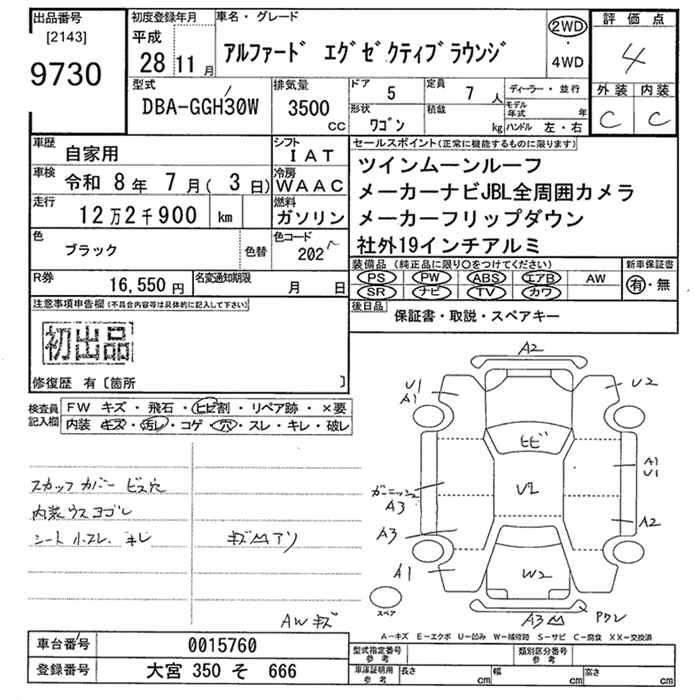 出品番号
[2143]
9730
初度登録年月
平成
28 11 月
車名・グレード
アルファード エグゼクティブラウンジ
2WD
・
4WD
評価点
4
外装 内装
C C
型式
DBA-GGH30W
排気量
3500
CC
ドア
5
定員
7 人
形状
ワゴン
積載
kg
ディーラー・並行
モデル
年式 年
ハンドル 左・右
車歴
自家用
シフト
IAT
車検
令和 8 年 7 月( 3 日)
冷房
WAAC
走行
12万2千900 km
燃料
ガソリン
色
ブラック
色替
色コード
202
セールスポイント(正常に機能するものに限ります)
ツインムーンルーフ
メーカーナビJBL全周囲カメラ
メーカーフリップダウン
社外19インチアルミ
装備品(純正品に限り○をつけてください)
PS PW ABS エアB AW
SR ナビ TV カワ
新車保証書
有・無
R券
16,550 円
名変通知期限
月 日
後日品
保証書・取説・スペアキー
注意事項申告欄(不具合内容等は具体的に記入して下さい)
初出品
修復歴 有〔箇所 〕
検査員
記入欄
FW キズ・飛石・ヒビ割・リペア跡・×要
内装 キズ・汚レ・コゲ・穴・スレ・キレ・破レ
スカッフカバー ビス穴
内装ウスヨゴレ
シート小スレ、キレ
AWキズ
A2
U1
A1
U2
ヒビ
A1
U1
ガーニッシュ
A3
U2
A2
A3
A1
W2
スペア
A3
A-キズ E-エクボ U-凹み W-補修跡 S-サビ C-腐食 XX-交換済
車台番号
0015760
登録番号
大宮 350 そ 666
型式指定番号
参考
類別区分番号
参考
車庫証明用
参考
長さ cm
幅 cm
高さ cm